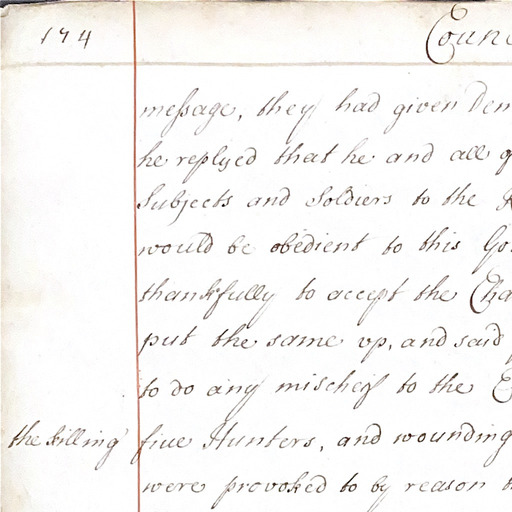 174
Counc
message, they had given Dem
he replyed that he and all
Subjects and Soldiers to the
would be obedient to this Go
thankfully to accept the Cha
put the same vp, and said
to do any mischeif to the E
the killing fiue Hunters, and wounding
were provoked to by reason